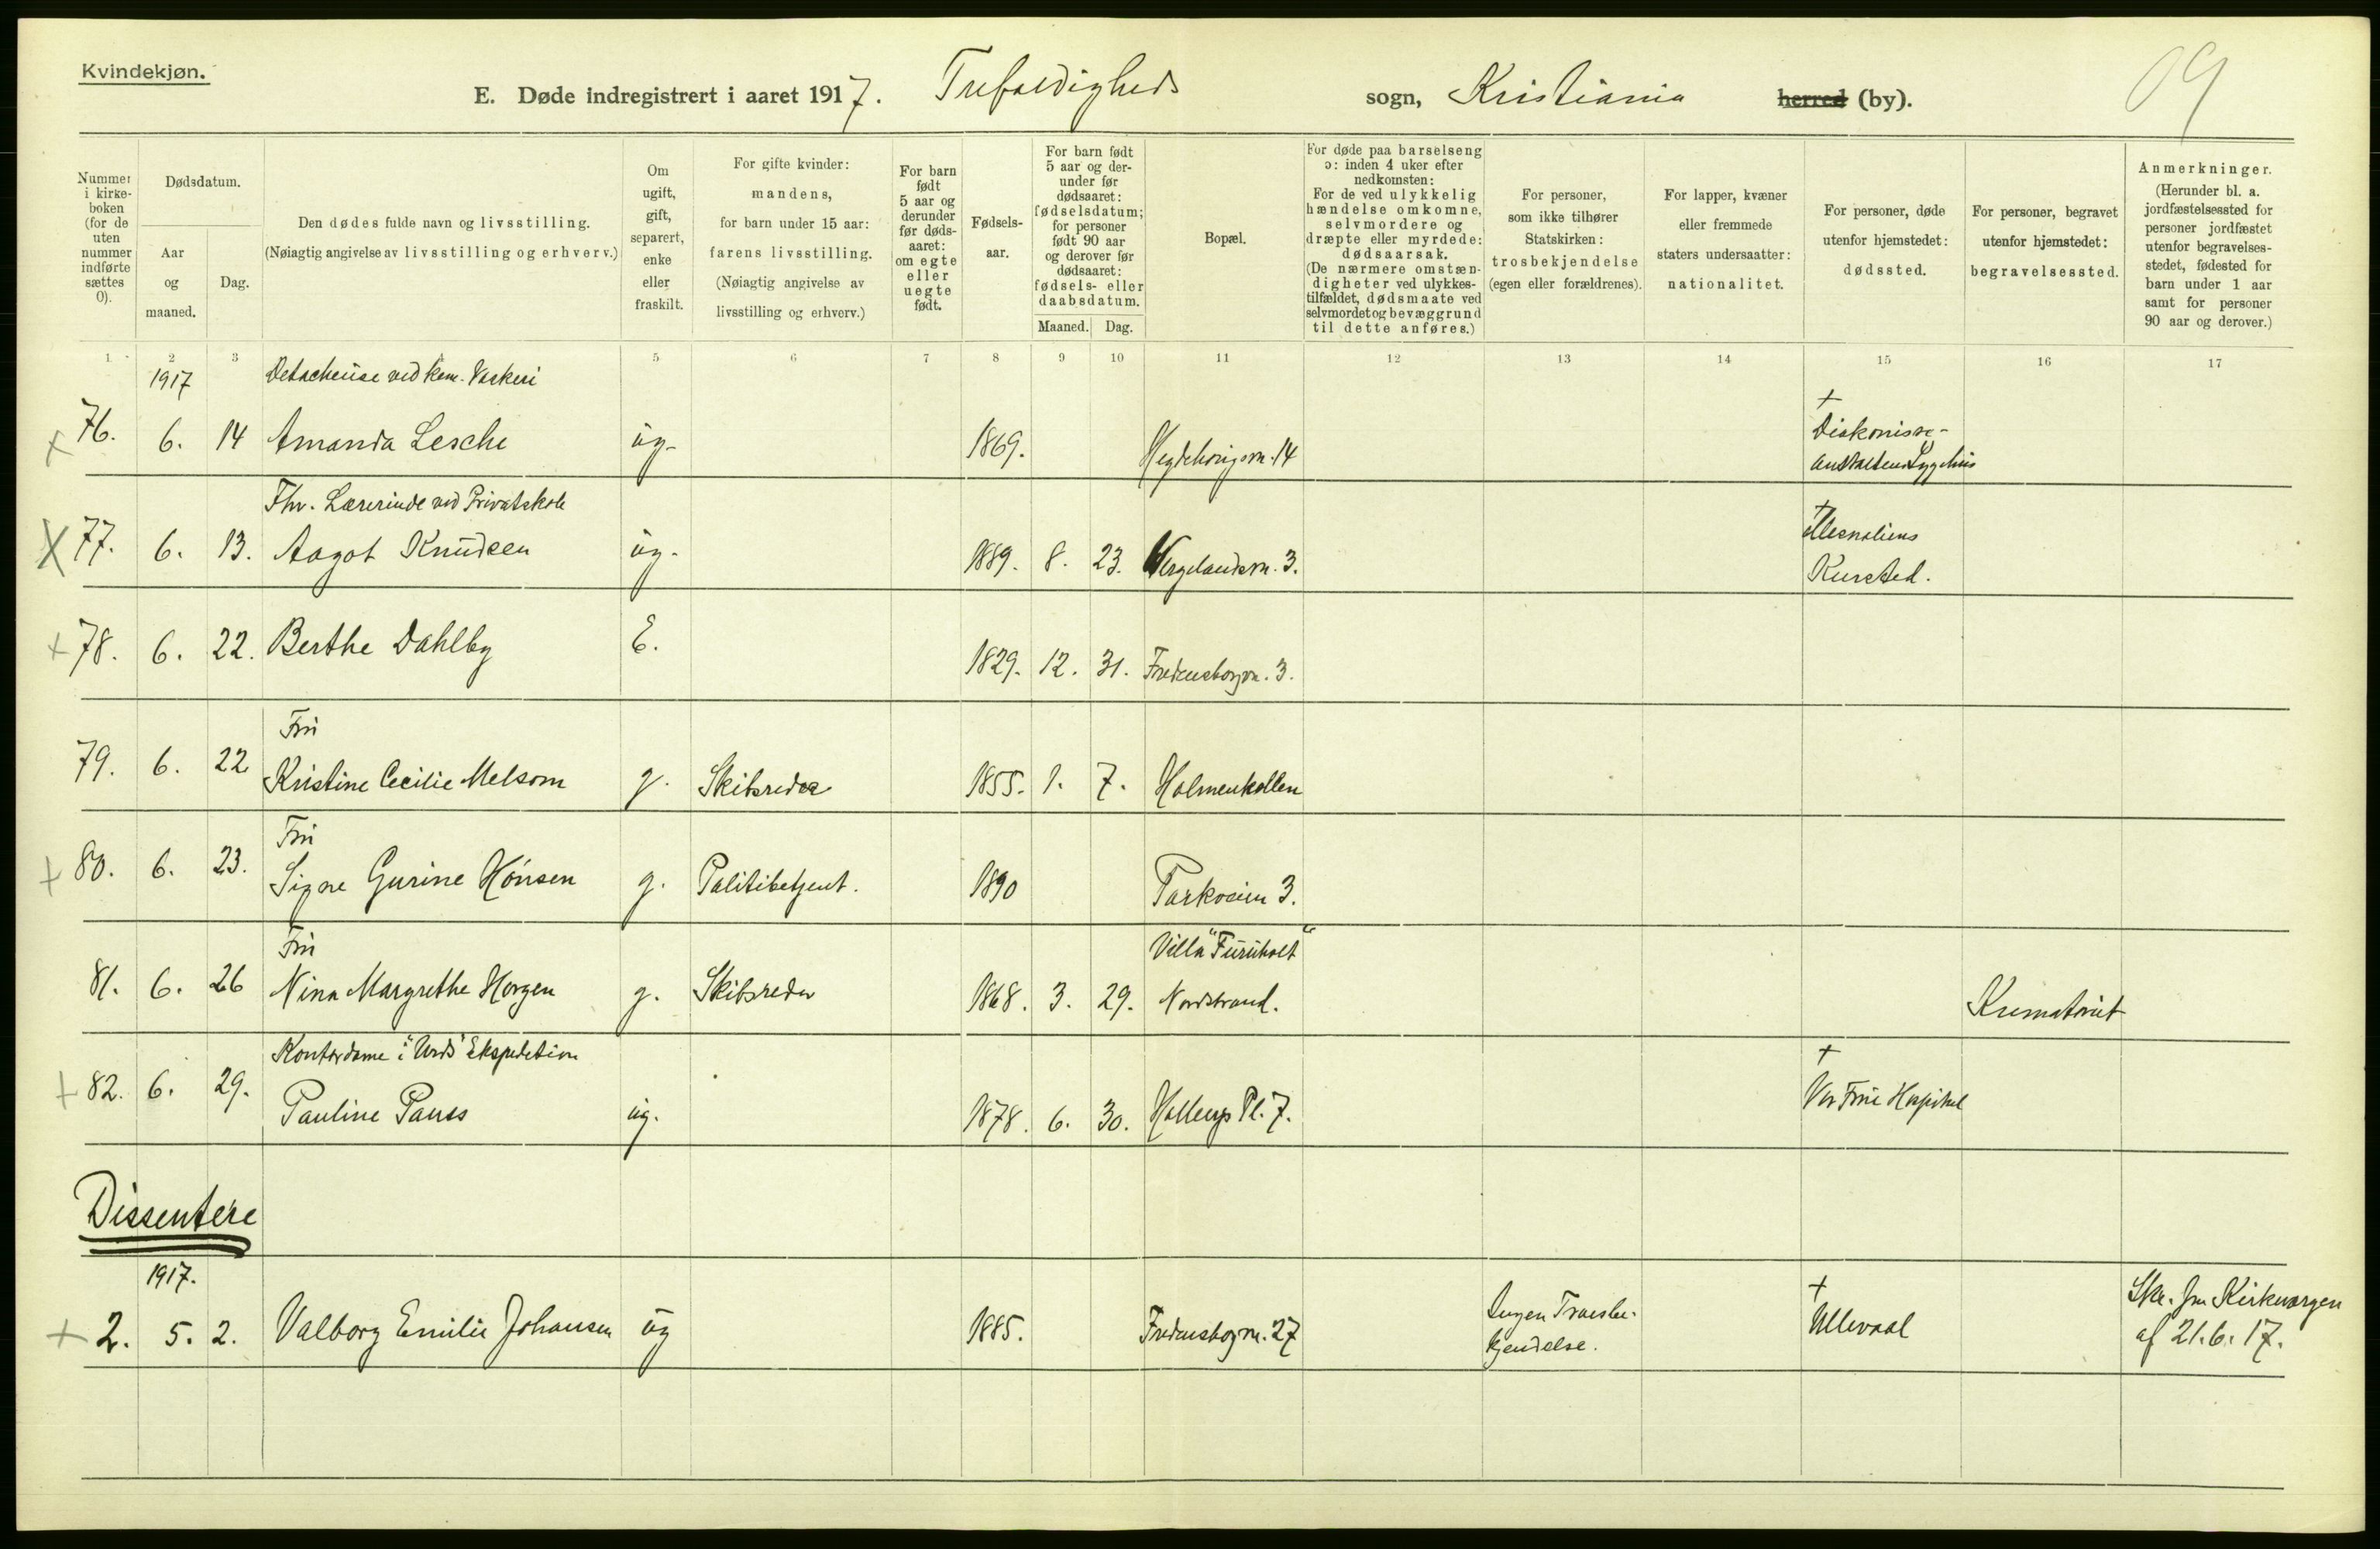 Kvindekjøn.
E. Døde indregistrert i aaret 1917. Trefoldigheds sogn, Kristiania herred (by).
09
Nummer i kirkeboken (for de uten nummer indførte sættes 0).
Dødsdatum.
Aar og maaned.
Dag.
Den dødes fulde navn og livsstilling.
(Nøiagtig angivelse av livsstilling og erhverv.)
Om ugift, gift, separert, enke eller fraskilt.
For gifte kvinder: mandens, for barn under 15 aar: farens livsstilling.
(Nøiagtig angivelse av livsstilling og erhverv.)
For barn født 5 aar og derunder før dødsaaret: om egte eller uegte født.
Fødselsaar.
For barn født 5 aar og derunder før dødsaaret: fødselsdatum; for personer født 90 aar og derover før dødsaaret: fødsels- eller daabsdatum.
Maaned. Dag.
Bopæl.
For døde paa barselseng ɔ: inden 4 uker efter nedkomsten:
For de ved ulykkelig hændelse omkomne, selvmordere og dræpte eller myrdede: dødsaarsak.
(De nærmere omstændigheter ved ulykkestilfældet, dødsmaate ved selvmordet og bevæggrund til dette anføres.)
For personer, som ikke tilhører Statskirken: trosbekjendelse (egen eller forældrenes).
For lapper, kvæner eller fremmede staters undersaatter: nationalitet.
For personer, døde utenfor hjemstedet: dødssted.
For personer, begravet utenfor hjemstedet: begravelsessted.
Anmerkninger.
(Herunder bl. a. jordfæstelsessted for personer jordfæstet utenfor begravelsesstedet, fødested for barn under 1 aar samt for personer 90 aar og derover.)
1 2 3 5 6 7 8 9 10 11 12 13 14 15 16 17
1917 Detacheuse ved kem. Vaskeri
76. 6. 14 Amanda Lesche ug. 1869. Hegdehaugsvn. 14 + Diakonisseanstaltens Sygehus
Fhv. Lærerinde ved Privatskole
77. 6. 13. Aagot Knudsen ug. 1889. 8. 23. Wergelandsvn. 3. + Mesnaliens Kursted.
78. 6. 22. Berthe Dahlby E. 1829. 12. 31. Fredensborgvn. 3.
Fru
79. 6. 22 Kristine Cecilie Melsom g. Skibsreder 1855. 1. 7. Holmenkollen
Fru
80. 6. 23. Signe Gurine Hansen g. Politibetjent. 1890 Parkveien 3.
Fru Villa "Furuholt"
81. 6. 26 Nina Margrethe Horgen g. Skibsreder 1868. 3. 29. Nordstrand. Krematoriet
Kontordame i "Urds" Ekspedition
82. 6. 29. Pauline Pauss ug. 1878. 6. 30. Hallings Pl. 7. + Vor Frue Hospital
Dissentere
1917.
2. 5. 2. Valborg Emilie Johansen ug 1885. Fredensborgvn. 27 Ingen Troesbekjendelse. + Ullevaal Ske. fra Kirkevergen af 21.6.17.